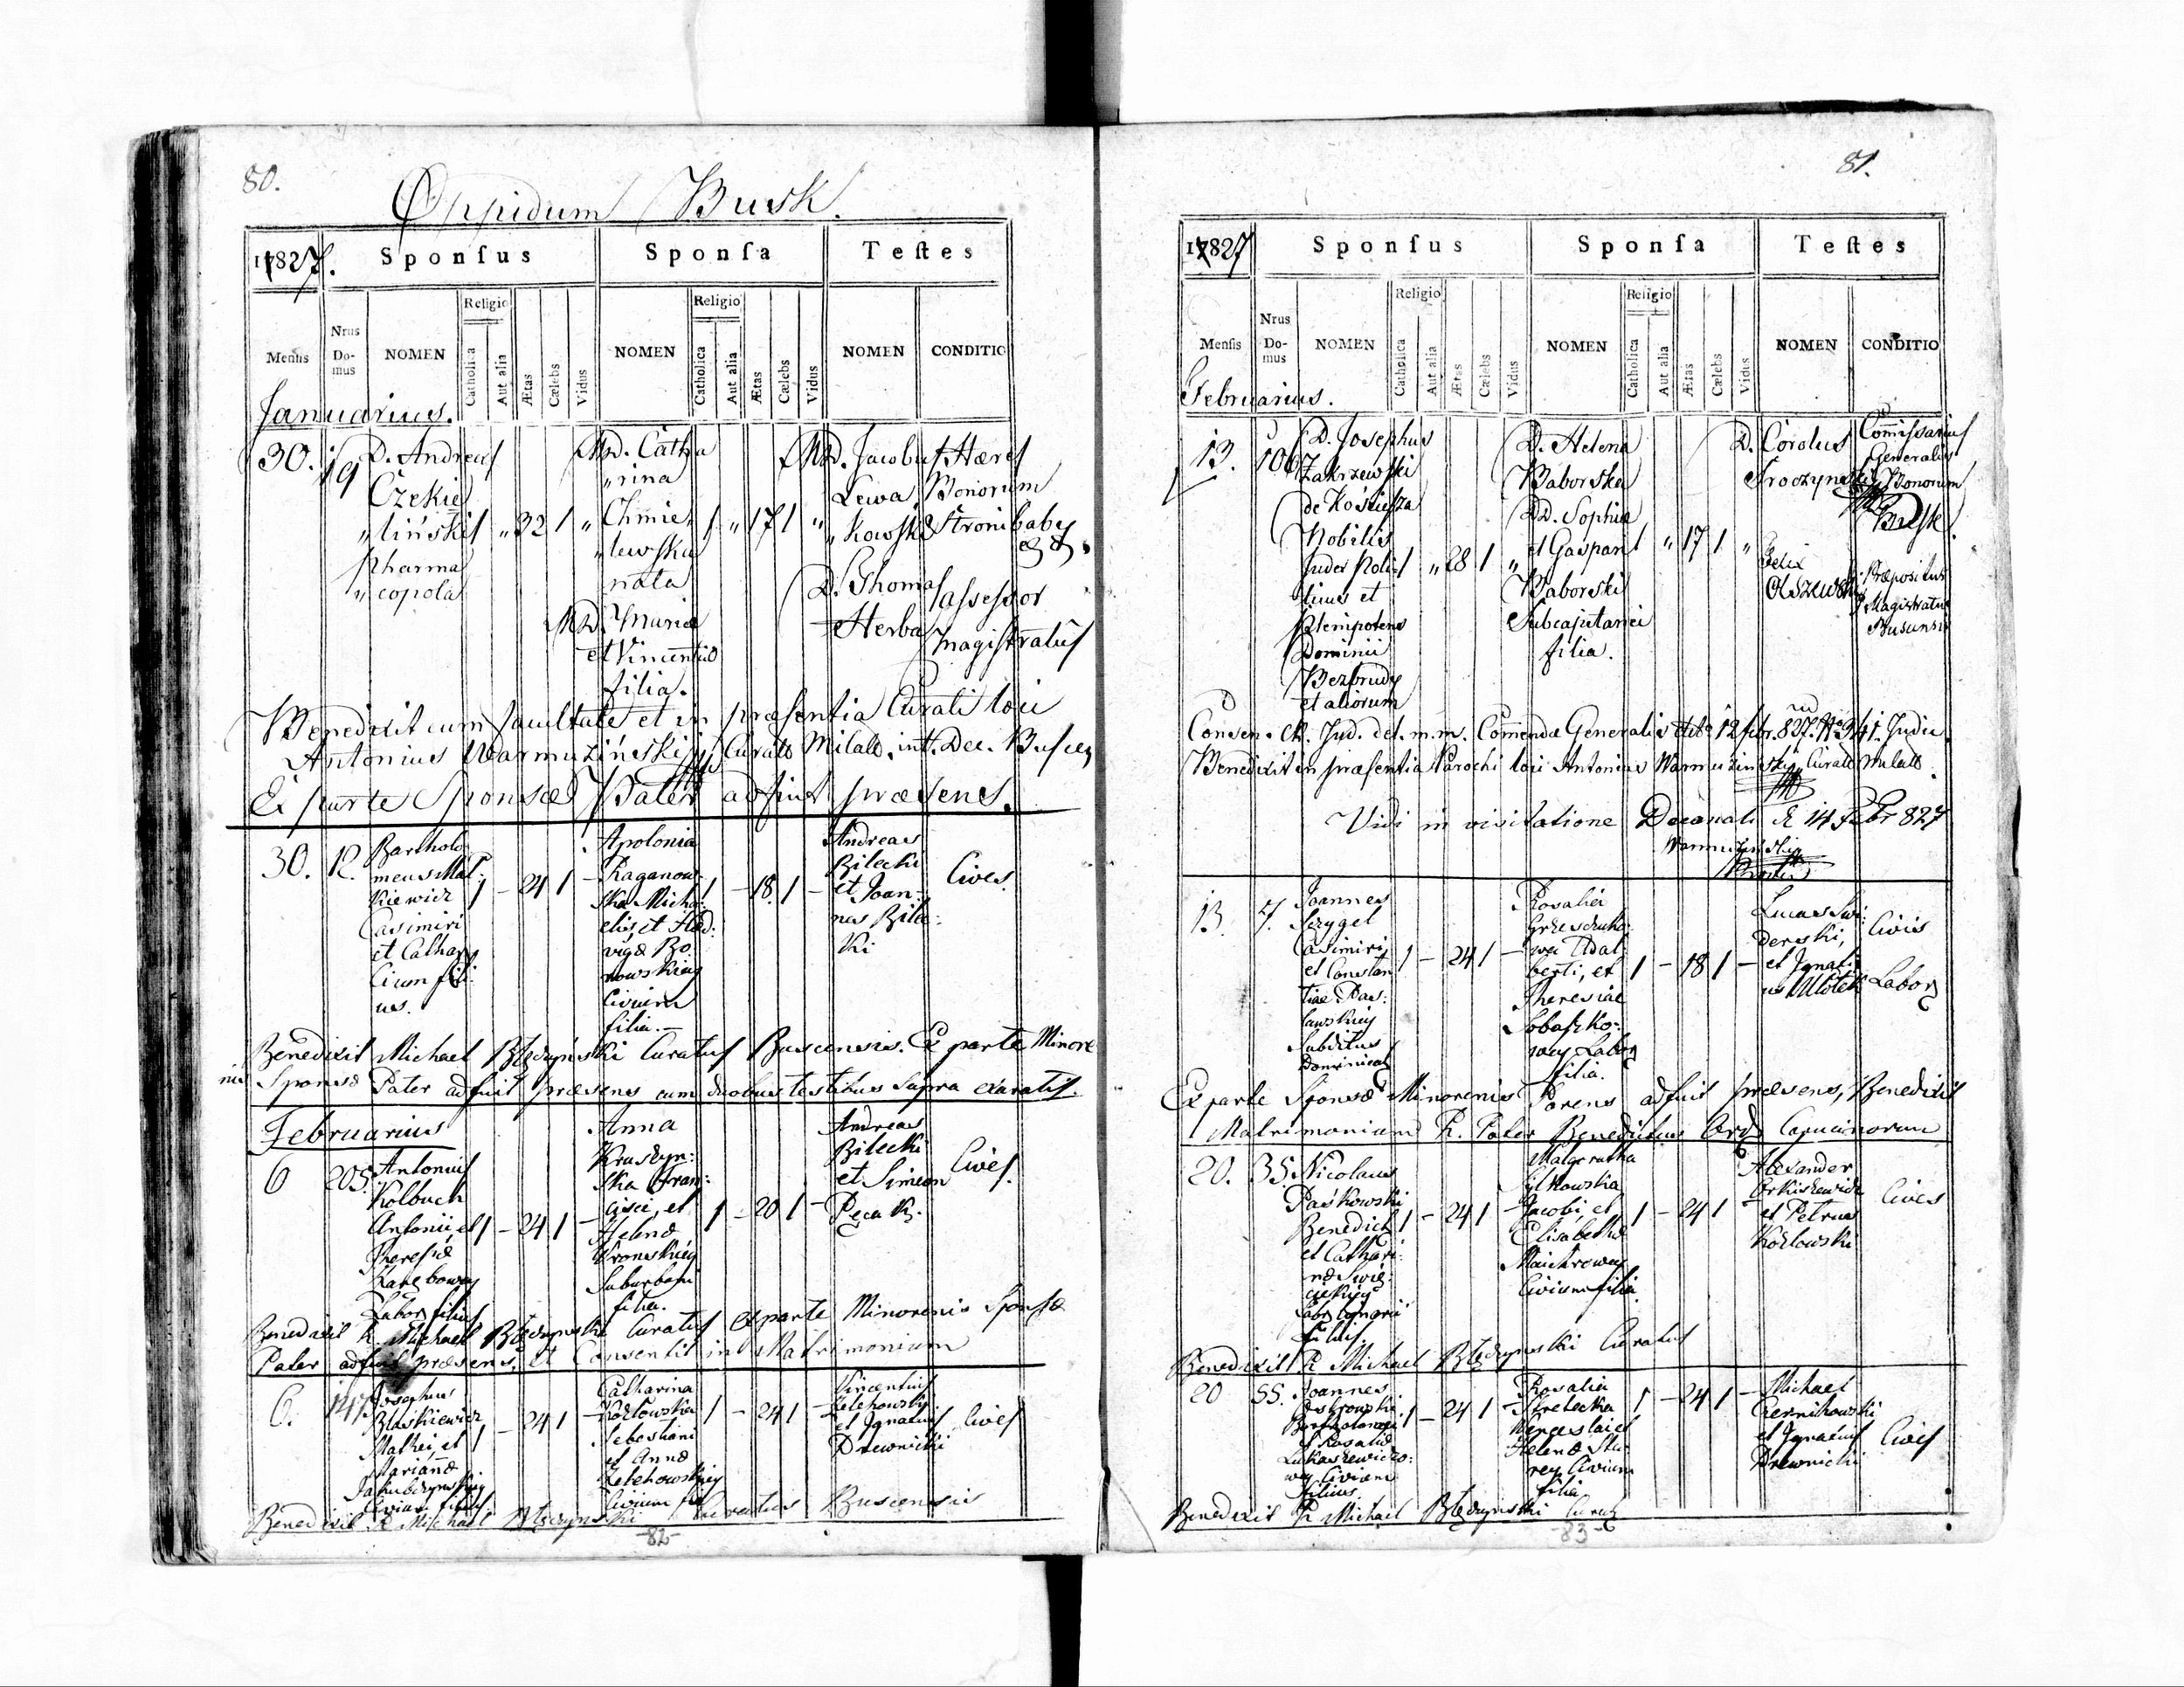 80.
Oppidum Busk.
1827.
Sponsus
Sponsa
Testes
Mensis
Nrus Domus
NOMEN
Religio
Catholica
Aut alia
Ætas
Cælebs
Vidus
NOMEN
Religio
Catholica
Aut alia
Ætas
Cælebs
Vidus
NOMEN
CONDITIO
Januarius.
30. 19
D. Andreas
Czekie
„liński
Pharma
„copola
1 „ 32 1 „
MD. Catha
„rina
Chmie
„lewska
nata
MD. Maria
et Vincentio
filia.
1 „ 17 1 „
MD. Jacobus
Lewa
„kowski
Hæres
Bonorum
Stronibaby
D. Thomas
Herba
assessor
magistratus
Benedixit cum facultate et in præsentia Curati loci
Antonius Warmuziński Curatus
Ex parte Sponsæ Pater adfuit præsens.
30. 12.
Bartholo
meus Mat:
kiewicz
Casimiri
et Cathar
Civium fili:
us.
1 – 24 1 –
Apolonia
Kaganow:
ska Micha:
elis et Hed:
vigæ Bo:
nowskiey
Civium
filia.–
1 – 18. 1 –
Andreas
Bilecki
et Joan:
nes Bile:
ki
Cives.
Benedixit Michael Błędzynski Curatus Buscensis. Ex parte Minore
nis Sponsæ Pater adfuit præsens cum duobus testibus supra exaratis.
Februarius
6 205.
Antonius
Kolbuch
Antonii, et
Theresiæ
Labor filius
1 – 24 1 –
Anna
Kruszyn:
ska Fran:
cisci, et
Helenæ
Suburbani
filia.
1 – 20 1 –
Andreas
Bilecki
et Simeon
Pecak.
Cives.
Benedixit R. Michael Błędzynski Curatus Ex parte Minorenis Sponsæ
Pater adfuit præsens, et Consentit in Matrimonium
6. 147.
Josephus
Błaskiewicz
Mathei, et
Mariannæ
Civium filius
1 – 24 1
Catharina
Kozłowska
Sebastiani
et Annæ
Zelehowskiey
Civium fil
1 – 24 1 –
Vincentius
Zelehowski
et Ignatius
Drewnicki
Cives
Benedixit R Michael Błędzynski Curatus Buscensis
-82-
81.
1827
Sponsus
Sponsa
Testes
Mensis
Nrus Domus
NOMEN
Religio
Catholica
Aut alia
Ætas
Cælebs
Vidus
NOMEN
Religio
Catholica
Aut alia
Ætas
Cælebs
Vidus
NOMEN
CONDITIO
Februarius.
13. 106
D. Josephus
Zakrzewski
de Kościesza
Nobilis
Judex Poli:
ticus et
Plenipotens
Dominii
Bezbrudy
et aliorum
1 „ 28 1 „
D. Helena
Baborska
DD. Sophiæ
et Gaspari
Baborski
Subcapitanei
filia.
1 „ 17 1 „
D. Carolus
Troczynski
Commissarius
Generalis
Bonorum
Busk.
Felix
Olszewski
Præpositus
Magistratus
Buscensis
Benedixit in præsentia Parochi loci Antonius Warmuzinski Curatus
Vidi in visitatione Decanali d. 14 Febr 827
13. 7.
Joannes
Szygel
Casimiri
et Constan
tiæ Das:
lawskiey
Subditus
Dominical
1 – 24 1 –
Rosalia
Grzeszczuko
wa Adal
berti, et
Theresiæ
Sobaszko:
wey Labor
filia.
1 – 18 1 –
Lucas Swi:
derski,
et Ignati
us Młotek
Civis
Labor
Ex parte Sponsæ Minorenis Parens adfuit præsens, Benedixit
Matrimonium R. Pater Benedictus Ord Capucinorum
20. 35.
Nicolaus
Paśkowski
Benedict
et Cathari:
næ Swię:
cickiey
filius.
1 – 24 1 –
Małgoratha
Jacobi, et
Elisabethæ
Civium filia.
1 – 24 1 –
Alexander
Orkiszewicz
et Petrus
Kozłowski
Cives
Benedixit R Michael Błędzynski Curatus
20 55.
Joannes
Ostrowski
Bartholomei
et Rosaliæ
Lukaszewiczo:
wey Civium
filius.
1 – 24 1 –
Rosalia
Strelecka
Wenceslai et
Helenæ Stu
rey Civium
filia
1 – 24 1 –
Michael
Czernihowski
et Ignatius
Drewnicki
Cives
Benedixit R Michael Błędzynski Curat
-83-